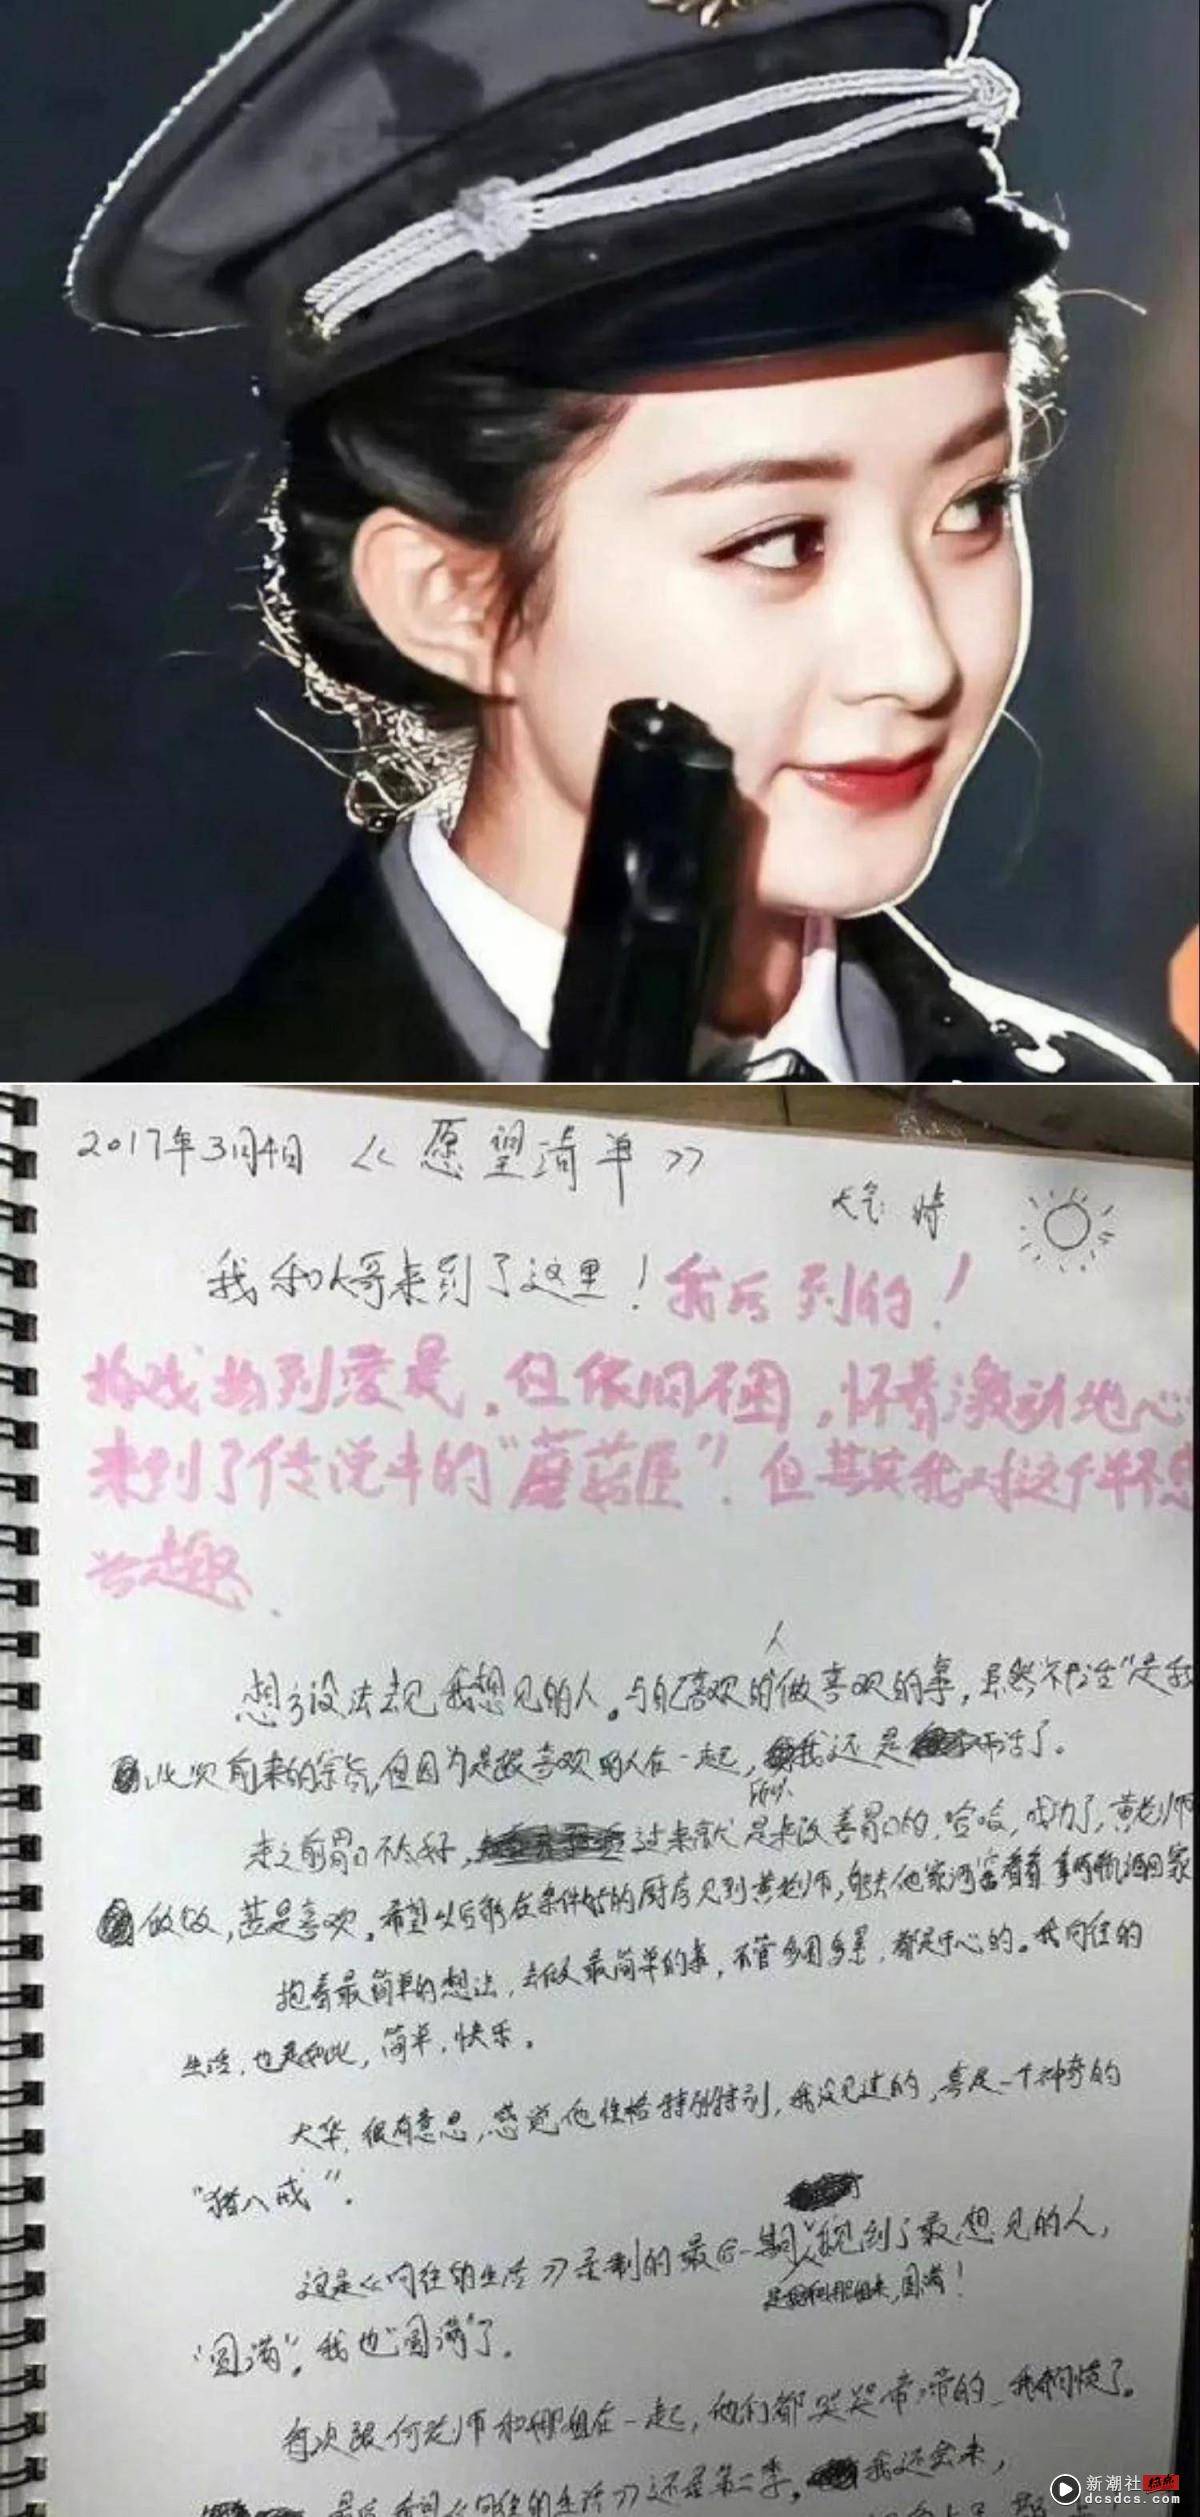 2017年3月4日 《愿望清单》
天气:晴
我和人哥来到了这里!我后到的!
拍戏拍到凌晨,但依旧不困,怀着激动地心
来到了传说中的"蘑菇屋".但其实我对这个单不感
兴趣.
人
想方设法去见我想见的人。与自己喜欢的做喜欢的事,虽然"是我
此次前来的宗旨,但因为是跟喜欢的人在一起,我还是干活了。
所以
来之前胃口不太好,过来就是来改善胃口的.哈哈,成功了,黄老师
做饭,甚是喜欢.希望以后能在条件好的厨房见到黄老师,能去他家酒窖看看拿两瓶酒回家
抱着最简单的想法,去做最简单的事,不管多困多累,都是开心的。我向往的
生活,也是如此,简单,快乐.
大华,很有意思,感觉他性格特别特别,我没见过的,真是一个神奇的
"猪八戒".
这是《向往的生活》录制的最后一期,见到了最想见的人,
圆满!
"圆满".我也"圆满"了.
每次跟何老师和娜姐在一起,他们都哭哭啼啼的,我都习惯了.
《向往的生活》还是第二季,我还会来,
新潮社
dcsdcs.com